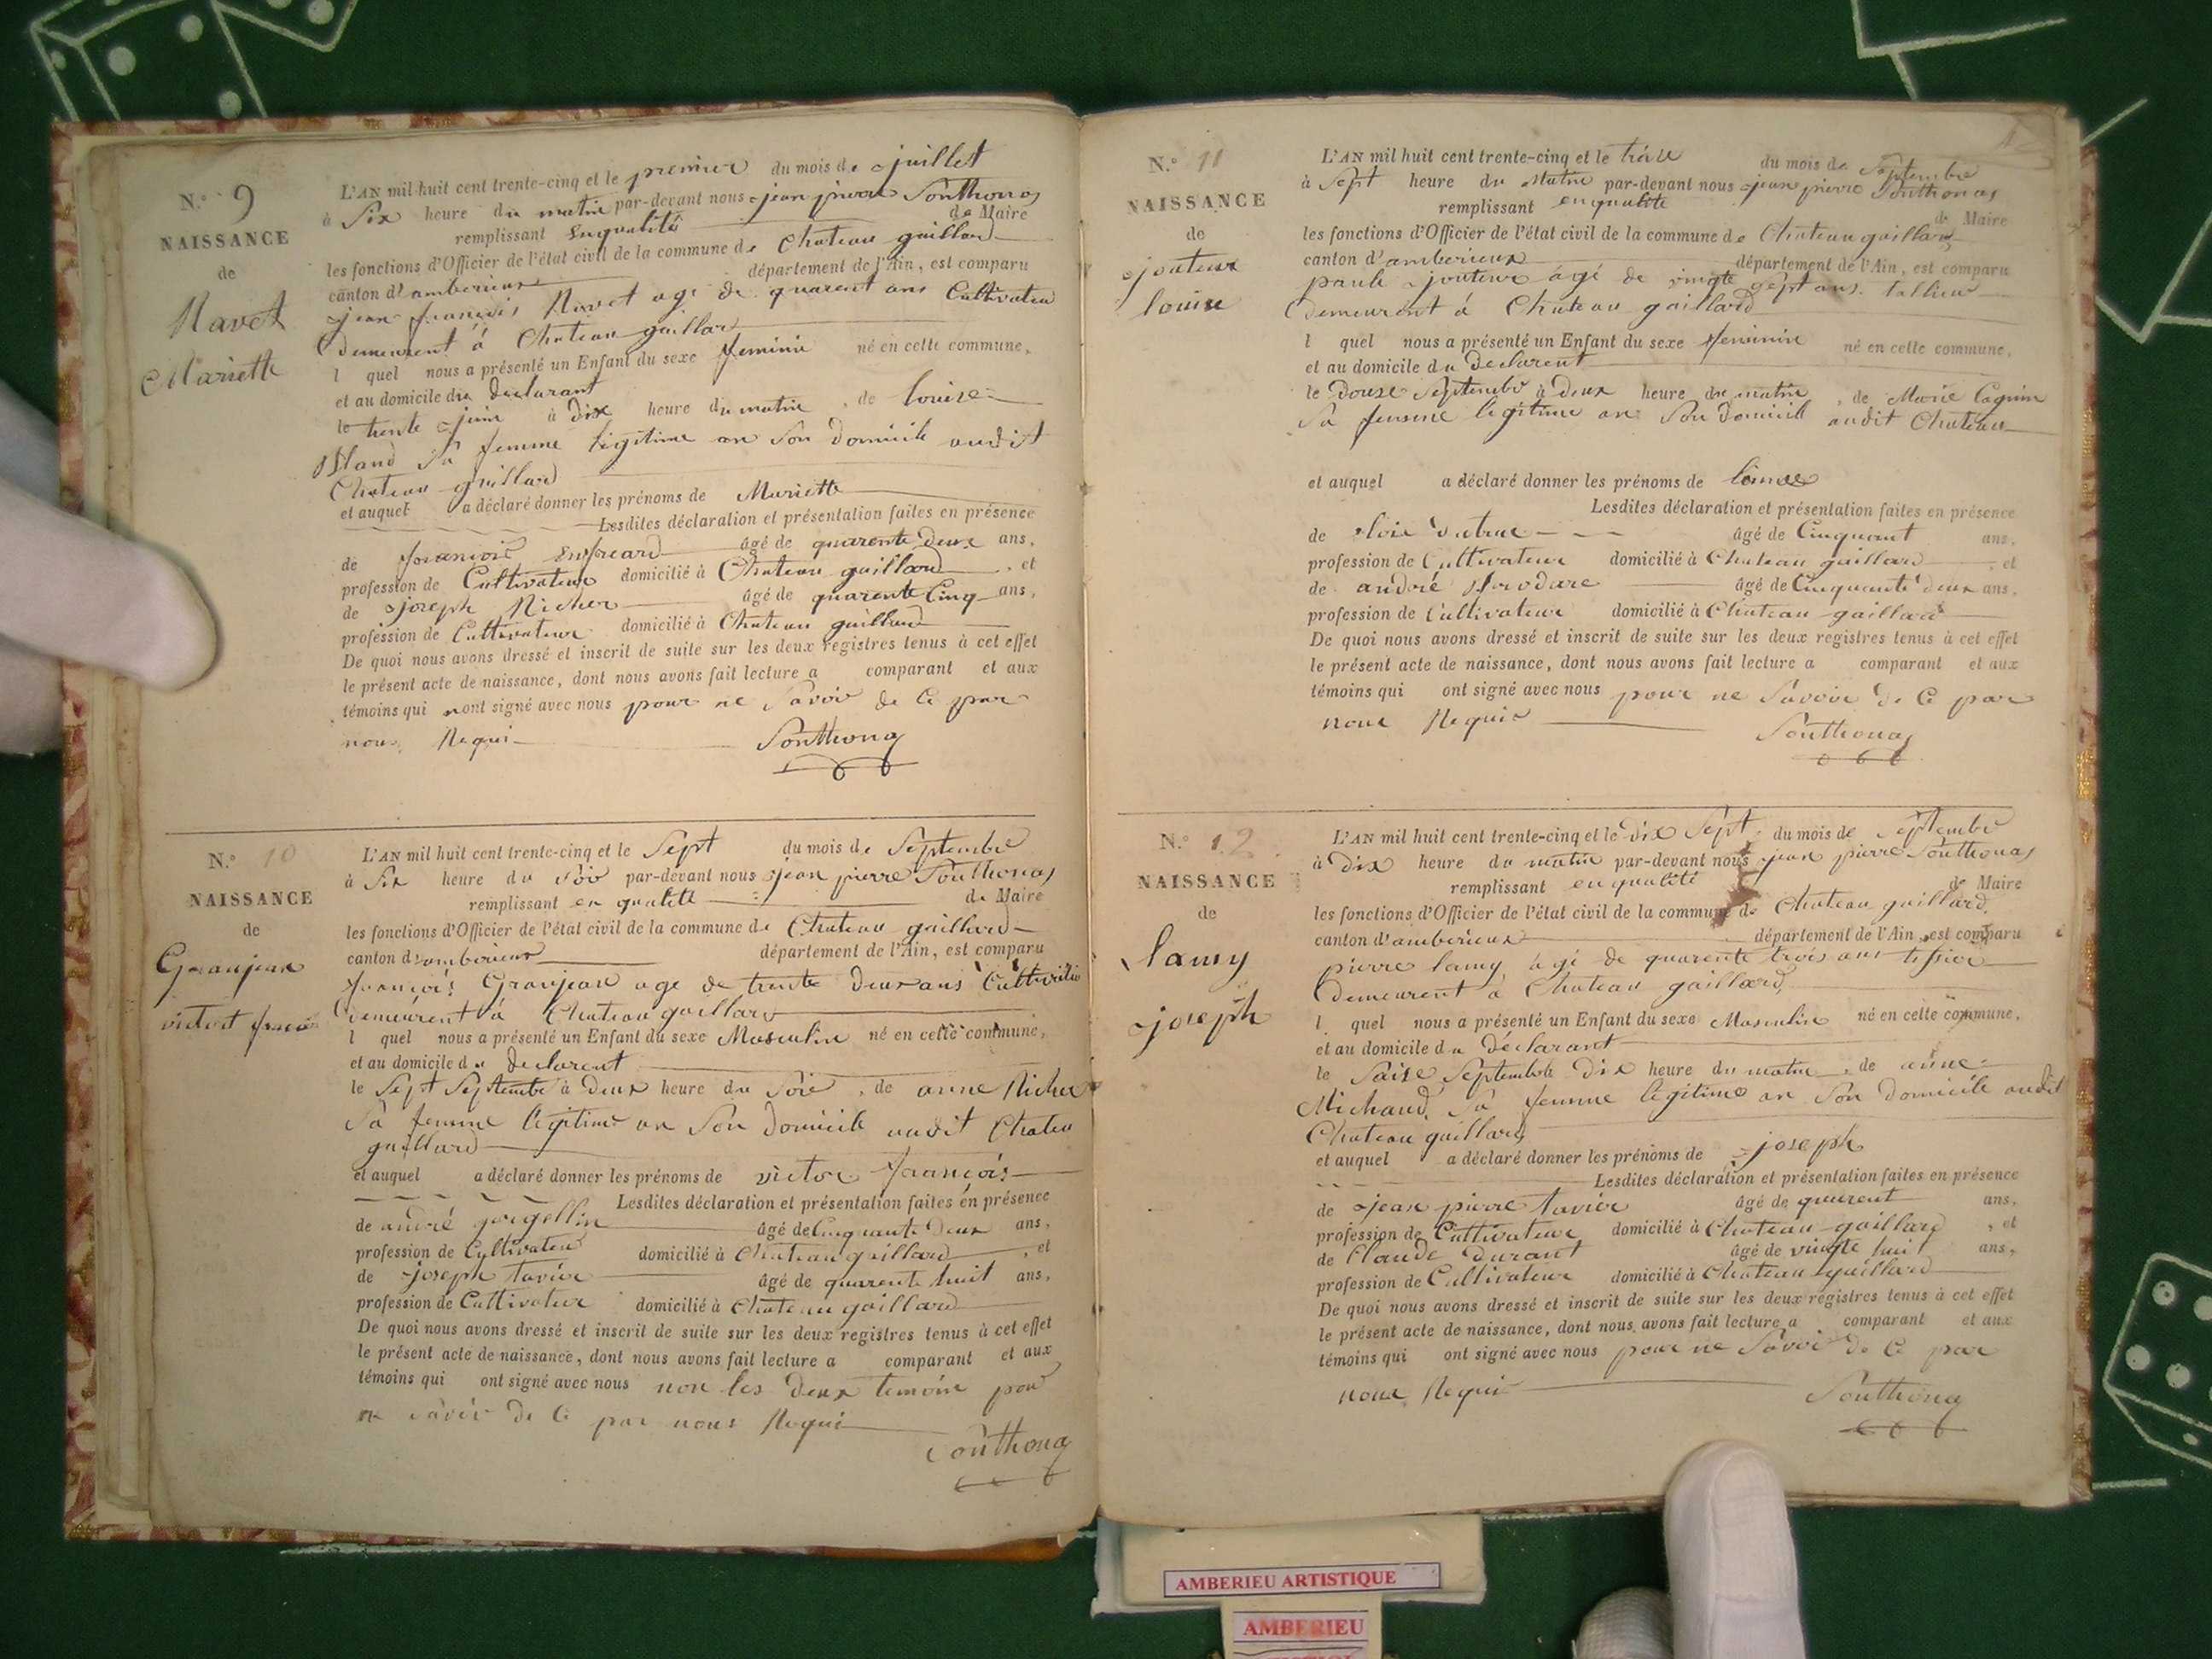 N.º 9
NAISSANCE
de
Navet
Mariette
L'AN mil huit cent trente-cinq et le premier du mois de juillet
à Six heure du matin par-devant nous jean pierre Sonthonas
remplissant enqualité de Maire
les fonctions d'Officier de l'état civil de la commune de Chateau gaillard
canton d'amberieux département de l'Ain, est comparu
jean françois Navet age de quarent ans Cultivateu
Demeurent á Chateau gaillar
l quel nous a présenté un Enfant du sexe feminin né en cette commune,
et au domicile du declarant
le trente juin à dix heure du matin, de louise
sa femme legitime an Son Domicile audit
Chateau gaillard
et auquel a déclaré donner les prénoms de Mariette
Lesdites déclaration et présentation faites en présence
de françois âgé de quarente deux ans,
profession de Cultivateur domicilié à Chateau gaillard, et
de joseph Richer âgé de quarente Cinq ans,
profession de Cultivateur domicilié à Chateau gaillard
De quoi nous avons dressé et inscrit de suite sur les deux registres tenus à cet effet
le présent acte de naissance, dont nous avons fait lecture a comparant et aux
témoins qui nont signé avec nous pour ne Savoir de Ce par
nous Requi
Sonthonas
N.º 10
NAISSANCE
de
Granjean
victort
L'AN mil huit cent trente-cinq et le Sept du mois de Septembre
à Six heure du Soir par-devant nous jean pierre Sonthonas
remplissant en qualité de Maire
les fonctions d'Officier de l'état civil de la commune de Chateau gaillard
canton d'amberieux département de l'Ain, est comparu
françois Granjean age de trente Deux ans
Demeurent á Chateau gaillard
l quel nous a présenté un Enfant du sexe Masculin né en cette commune,
et au domicile du declarent
le Sept Septembre à Deux heure du Soir, de anne Richer
Sa femme legitime an Son Domicile audit Chateau
gaillard
et auquel a déclaré donner les prénoms de victor françois
Lesdites déclaration et présentation faites en présence
de andré âgé de Cinquante Deux ans,
profession de Cultivateu domicilié à Chateau gaillard, et
de joseph tavier âgé de quarente huit ans,
profession de Cultivateur domicilié à Chateau gaillard
De quoi nous avons dressé et inscrit de suite sur les deux registres tenus à cet effet
le présent acte de naissance, dont nous avons fait lecture a comparant et aux
témoins qui ont signé avec nous non les Deux temoin pour
ne Savoir de Ce par nous Requi
Sonthonas
N.º 11
NAISSANCE
de
jouteur
louise
L'AN mil huit cent trente-cinq et le treize du mois de Septembre
à Sept heure du Matin par-devant nous jean pierre Sonthonas
remplissant enqualité de Maire
les fonctions d'Officier de l'état civil de la commune de Chateau gaillard
canton d'amberieux département de l'Ain, est comparu
jouteur ágé de vingte Sept ans. tallieur
Demeurent á Chateau gaillard
l quel nous a présenté un Enfant du sexe feminin né en cette commune,
et au domicile du Declarent
le Douse Septembre à Deux heure du matin, de Marie
Sa femme legitime an Son Domicile audit Chateau
et auquel a déclaré donner les prénoms de
Lesdites déclaration et présentation faites en présence
de âgé de Cinquant ans,
profession de Cultivateur domicilié à Chateau gaillard, et
de andré âgé de Cinquante Deux ans,
profession de Cultivateur domicilié à Chateau gaillard
De quoi nous avons dressé et inscrit de suite sur les deux registres tenus à cet effet
le présent acte de naissance, dont nous avons fait lecture a comparant et aux
témoins qui ont signé avec nous pour ne Savoir de Ce par
nous Requis
Sonthonas
N.º 12
NAISSANCE
de
lamy
joseph
L'AN mil huit cent trente-cinq et le Dix Sept du mois de Septembre
à Dix heure du matin par-devant nous jean pierre Sonthonas
remplissant en qualité de Maire
les fonctions d'Officier de l'état civil de la commune de Chateau gaillard
canton d'amberieux département de l'Ain, est comparu
pierre lamy agé de quarente trois ans tissier
Demeurent a Chateau gaillard
l quel nous a présenté un Enfant du sexe Masculin né en cette commune,
et au domicile du Déclarant
le Saise Septembre Dix heure du matin, de anne
Michaud, Sa femme legitime an Son Domicile audit
Chateau gaillard
et auquel a déclaré donner les prénoms de joseph
Lesdites déclaration et présentation faites en présence
de jean pierre tavier âgé de quarent ans,
profession de Cultivateur domicilié à Chateau gaillard, et
de Claude Durant âgé de vingte huit ans,
profession de Cultivateur domicilié à Chateau gaillard
De quoi nous avons dressé et inscrit de suite sur les deux registres tenus à cet effet
le présent acte de naissance, dont nous avons fait lecture a comparant et aux
témoins qui ont signé avec nous pour ne Savoir de Ce par
nous Requi
Sonthonas
AMBERIEU ARTISTIQUE
AMBERIEU